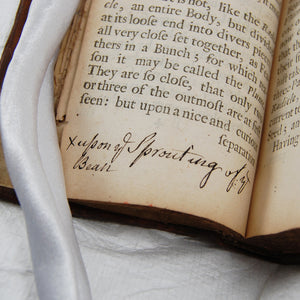 is not, like the Ra
cle, an entire Body, but divide
at its loose end into divers piec
all very close set together, as F
thers in a Bunch; for which
son it may be called the Plum
They are so close, that only t
or three of the outmost are at f
seen: but upon a nice and curiou
separatin
x upon yͤ Sprouting of yͤ
Bean
Seed;
Having